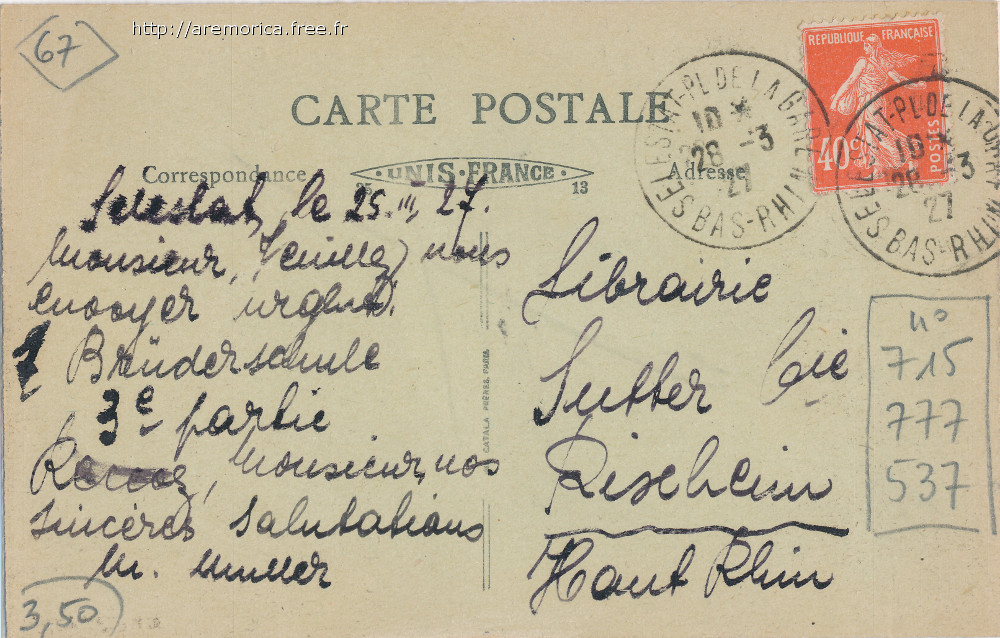 67
http://aremorica.free.fr
CARTE POSTALE
Correspondance
UNIS-FRANCE
25
13
Adresse
REPUBLIQUE FRANÇAISE
40c
POSTES
SELESTAT-PL DE LA GARE
BAS-RHIN
10 *
28 -3
27
SELESTAT-PL DE LA GARE
BAS-RHIN
10 *
28 -3
27
Selestat, le 25.III.27.
Monsieur, Veuillez nous
envoyer urgent.
1 Brüderschule
3e partie
Recevez, Monsieur, nos
sincères salutations
M. Muller
CATALA FRÈRES, PARIS
Librairie
Sutter Cie
Rixheim
Haut Rhin
n°
715
777
537
3,50